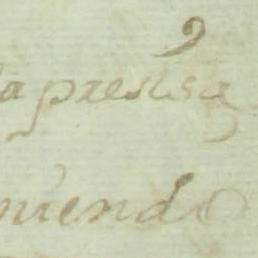 la precisa
niendo